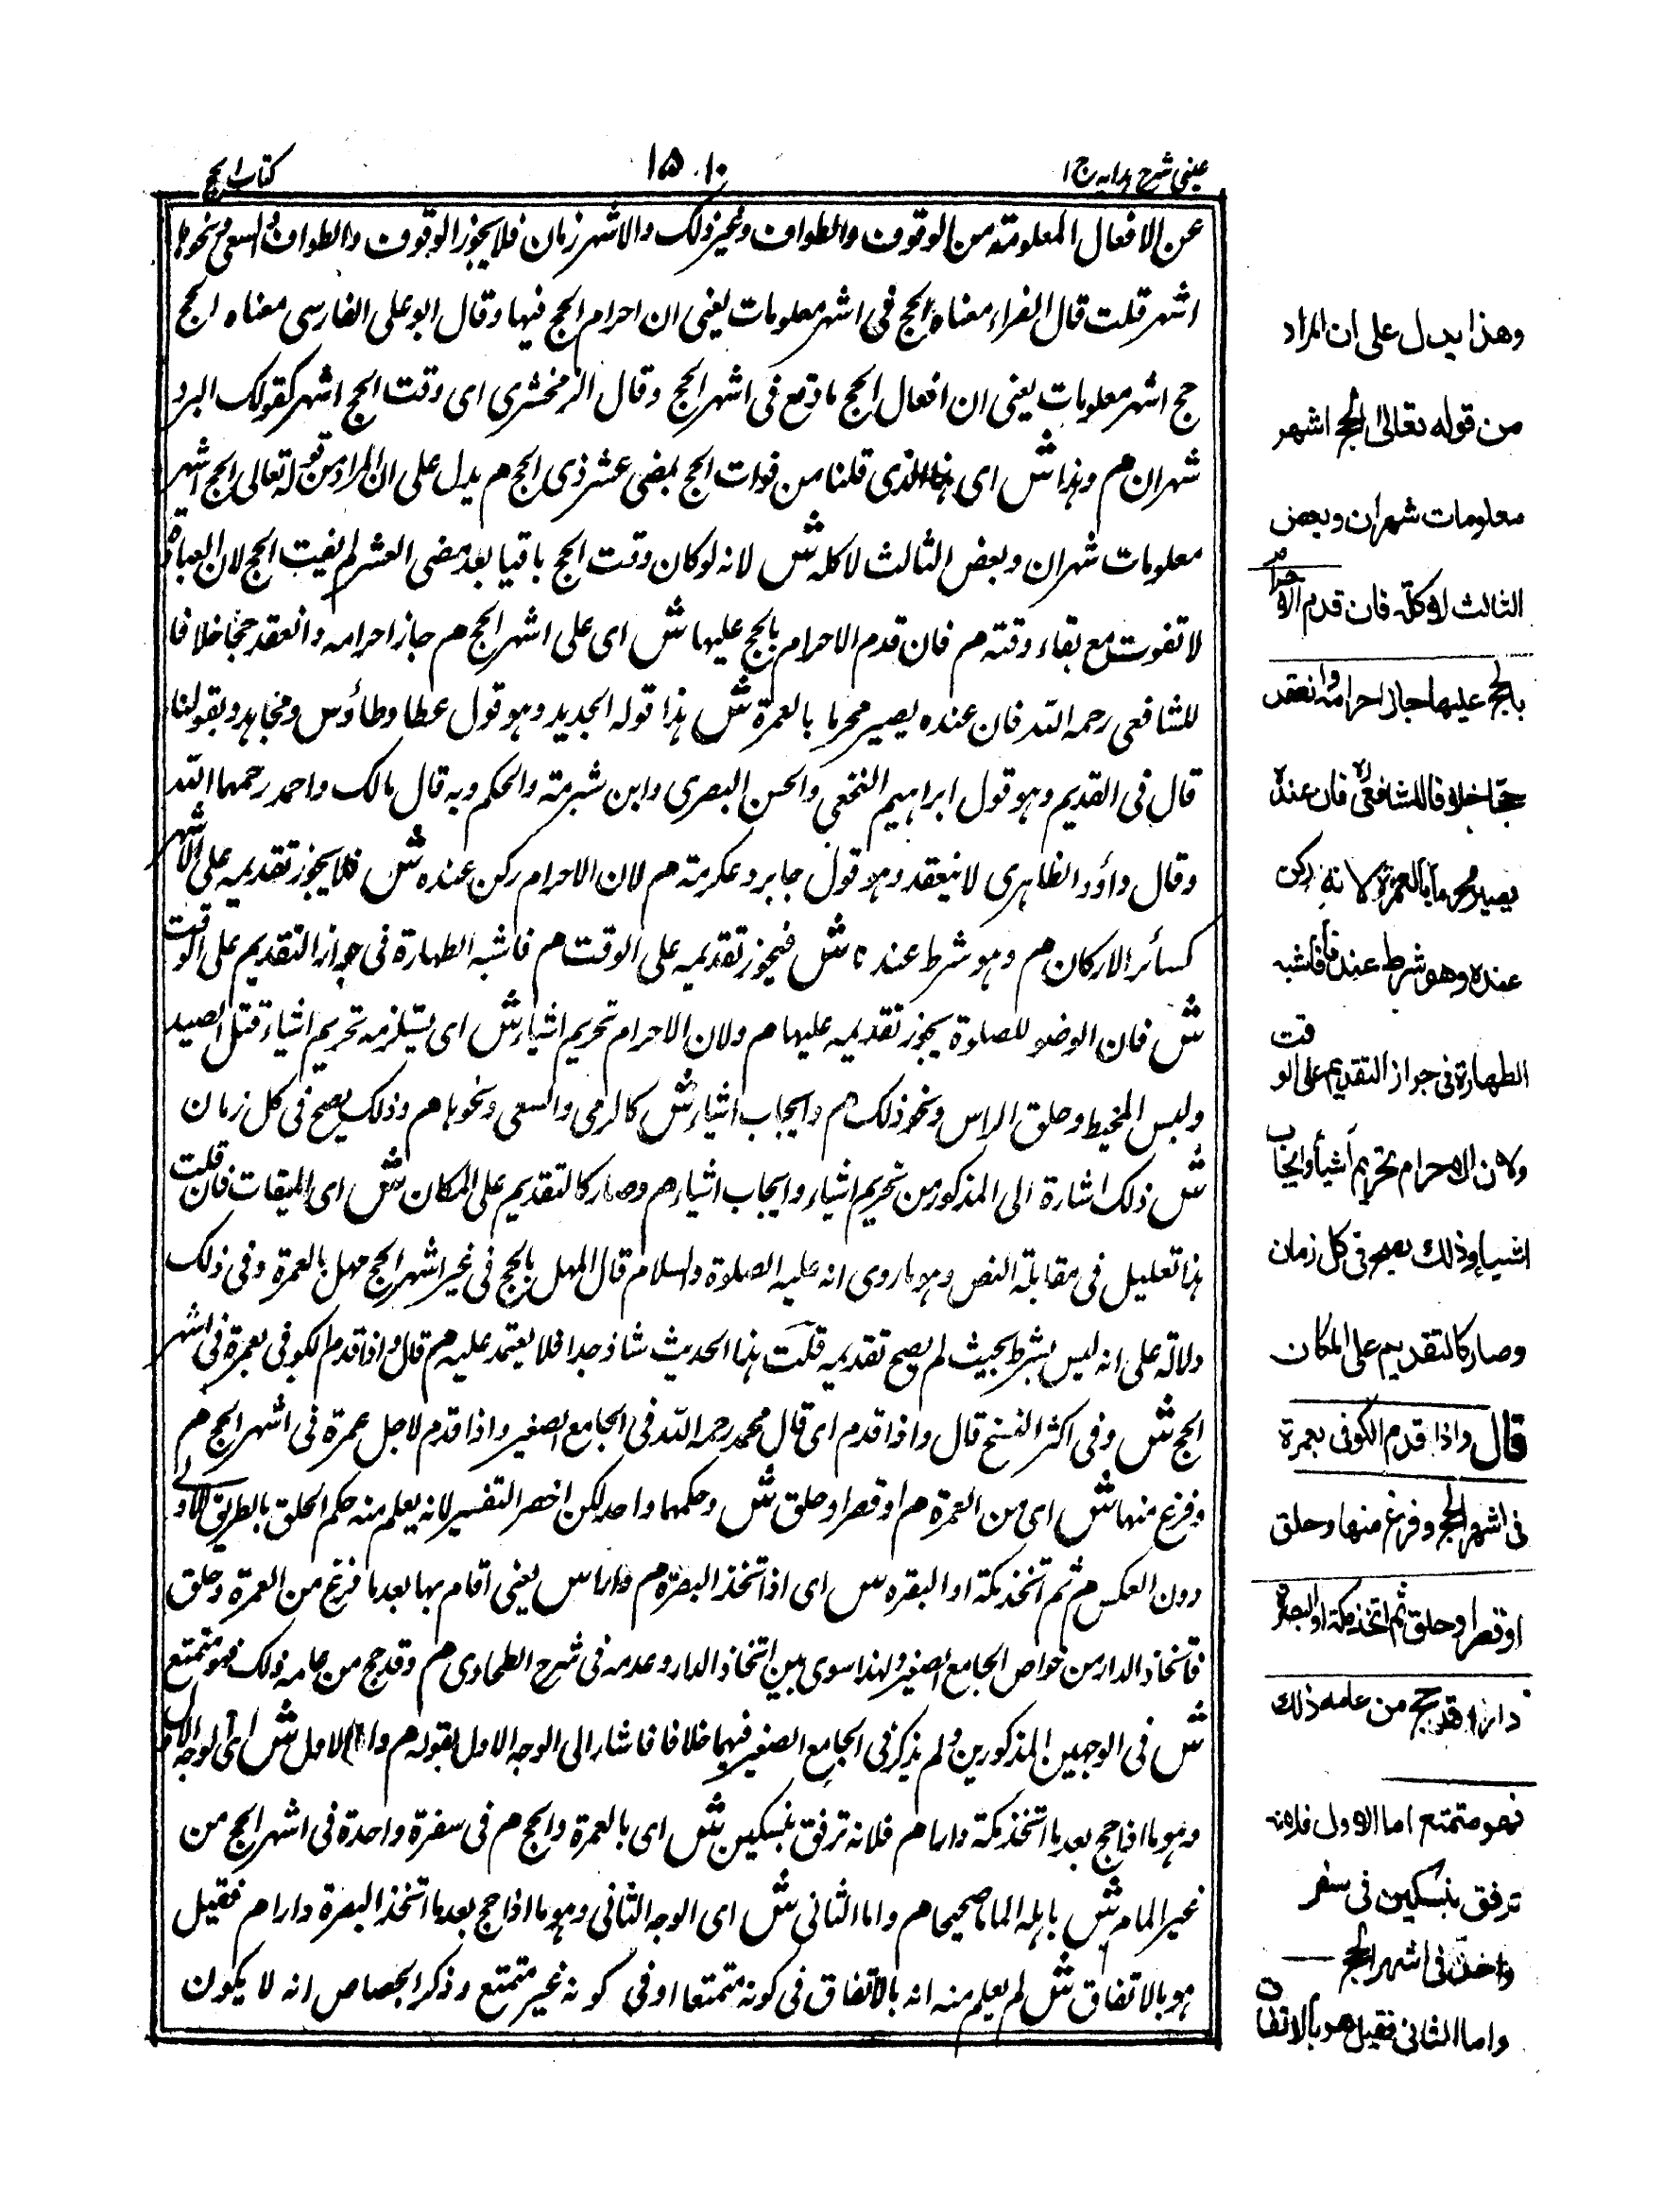 عینی شرح ہدایہ ج ١
١٥١٠
کتاب الحج
عن الافعال المعلومة من الوقوف والطواف وغیر ذلک والاشهر زمان فلا یجوز الوقوف والطواف والسعی ونحوہا
اشهر قلت قال الفراء معناہ الحج فی اشهر معلومات یعنی ان احرام الحج فیها وقال ابو علی الفارسی معناہ الحج
حج اشهر معلومات یعنی ان افعال الحج ما وقع فی اشهر الحج وقال الزمخشری ای وقت الحج اشهر کقولک البرد
شهران م وہذا ش ای ہذا الذی قلنا من فوات الحج بمضی عشر ذی الحج م یدل علی ان المراد من قوله تعالی الحج اشهر
معلومات شهران وبعض الثالث لا کله ش لانه لو کان وقت الحج باقیا بعد مضی العشر لم یفت الحج لان العبادة
لا تفوت مع بقاء وقته م فان قدم الاحرام بالحج علیها ش ای علی اشهر الحج م جاز احرامه وانعقد حجا خلافا
للشافعی رحمه الله فان عندہ یصیر محرما بالعمرة ش ہذا قوله الجدید وہو قول عطا وطاؤس ومجاہد وبقولنا
قال فی القدیم وہو قول ابراہیم النخعی والحسن البصری وابن شبرمة والحکم وبه قال مالک واحمد رحمهما الله
وقال داؤد الظاہری لا ینعقد وہو قول جابر وعکرمة م لان الاحرام رکن عندہ ش فلا یجوز تقدیمه علی الاشهر
کسائر الارکان م وہو شرط عندنا ش فیجوز تقدیمه علی الوقت م فاشبه الطهارة فی جواز التقدیم علی الوقت
ش فان الوضو للصلوة یجوز تقدیمه علیها م ولان الاحرام تحریم اشیاء ش ای یستلزمه تحریم اشیاء قتل الصید
ولبس المخیط وحلق الراس ونحو ذلک م وایجاب اشیاء ش کالرمی والسعی ونحوہا م وذلک یصح فی کل زمان
ش ذلک اشارة الی المذکور من تحریم اشیاء وایجاب اشیاء م وصار کالتقدیم علی المکان ش ای المیقات فان قلت
ہذا تعلیل فی مقابلة النص وہو ما روی انه علیه الصلوة والسلام قال المهل بالحج فی غیر اشهر الحج مهل بالعمرة وفی ذلک
دلالة علی انه لیس بشرط بحیث لم یصح تقدیمه قلت ہذا الحدیث شاذ جدا فلا یعتمد علیه م قال واذا قدم الکوفی بعمرة فی اشهر
الحج ش وفی اکثر النسخ قال واذا قدم ای قال محمد رحمه الله فی الجامع الصغیر واذا قدم لاجل عمرة فی اشهر الحج م
وفرغ منها ش ای من العمرة م او قصر او حلق ش وحکمهما واحد لکن اخصر التفسیر لانه یعلم منه حکم الحلق بالطریق الاولی
دون العکس م ثم اتخذ مکة او البصرة ش ای اذ اتخذ البصرة م دارا ش یعنی اقام بها بعد ما فرغ من العمرة وحلق
فاتخاذ الدار من خواص الجامع الصغیر ولهذا سوی بین اتخاذ الدار وعدمه فی شرح الطحاوی م وقد حج من عامه ذلک فهو متمتع
ش فی الوجهین المذکورین ولم یذکر فی الجامع الصغیر فیهما خلافا فاشار الی الوجه الاول بقوله م واما الاول ش ای الوجه الاول
وہو ما اذا حج بعد ما اتخذ مکة دارا م فلانه ترفق بنسکین ش ای بالعمرة والحج م فی سفرة واحدة فی اشهر الحج من
غیر المام ش باہله الماما صحیحا م واما الثانی ش ای الوجه الثانی وہو ما اذا حج بعد ما اتخذ البصرة دارا م فقیل
ہو بالاتفاق ش لم یعلم منه انه بالاتفاق فی کونه متمتعا او فی کونه غیر متمتع وذکر الجصاص انه لا یکون
وهذا یدل علی ان المراد
من قوله تعالی الحج اشهر
معلومات شهران وبعض
الثالث لا کله فان قدم الاحرام
بالحج علیها جاز احرامه وانعقد
حجا خلافا للشافعی فان عنده
یصیر محرما بالعمرة لانه رکن
عنده وهو شرط عندنا فاشبه
الطهارة فی جواز التقدیم علی الوقت
ولان الاحرام تحریم اشیاء وایجاب
اشیاء وذلك یصح فی کل زمان
وصار کالتقدیم علی المکان
قال واذا قدم الکوفی بعمرة
فی اشهر الحج وفرغ منها وحلق
او قصر وحلق ثم اتخذ مکة او البصرة
دارا وقد حج من عامه ذلك
فهو متمتع اما الاول فلانه
ترفق بنسکین فی سفر
واحد فی اشهر الحج
واما الثانی فقیل هو بالاتفاق